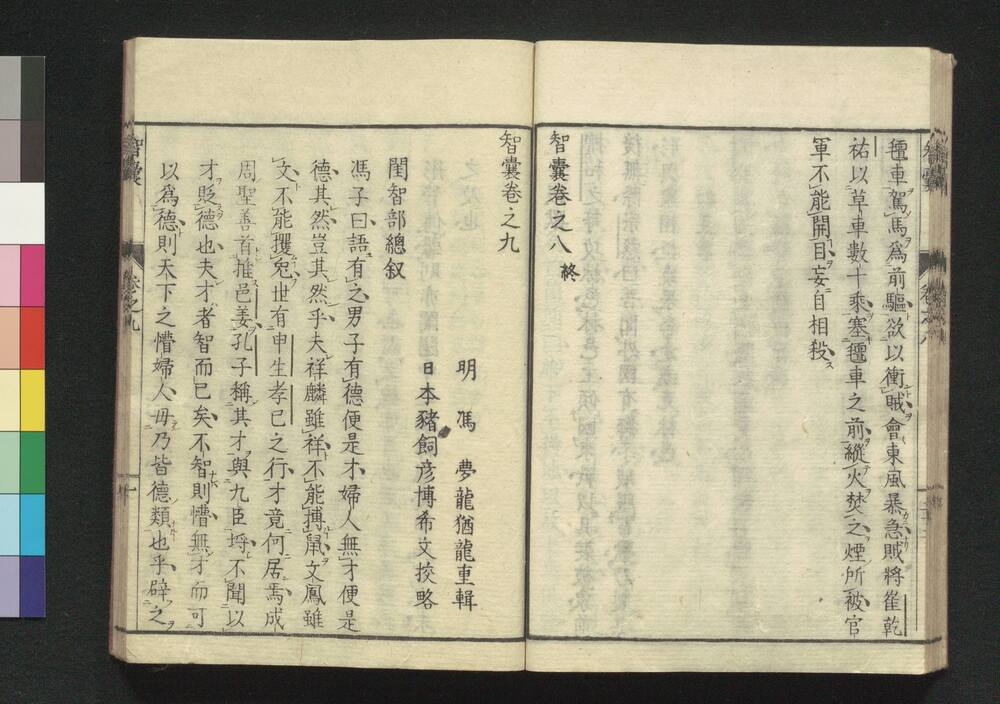 氊車駕馬爲前驅欲以衝賊會東風暴急賊將崔乾
祐以草車數十乘塞氊車之前縱火焚之煙所被官
軍不能開目妄自相殺
智囊卷之八終
智囊卷之九
明 馮夢龍猶龍重輯
日本豬飼彦博希文挍略
閨智部總叙
馮子曰語有之男子有德便是才婦人無才便是
德其然豈其然乎夫祥麟雖祥不能搏鼠文鳳雖
文不能攫兔世有申生孝己之行才竟何居焉成
周聖善首推邑姜孔子稱其才與九臣埒不聞以
才貶德也夫才者智而已矣不智則懵無才而可
以爲德則天下之懵婦人毋乃皆德類也乎辟之
智囊
卷之九
一